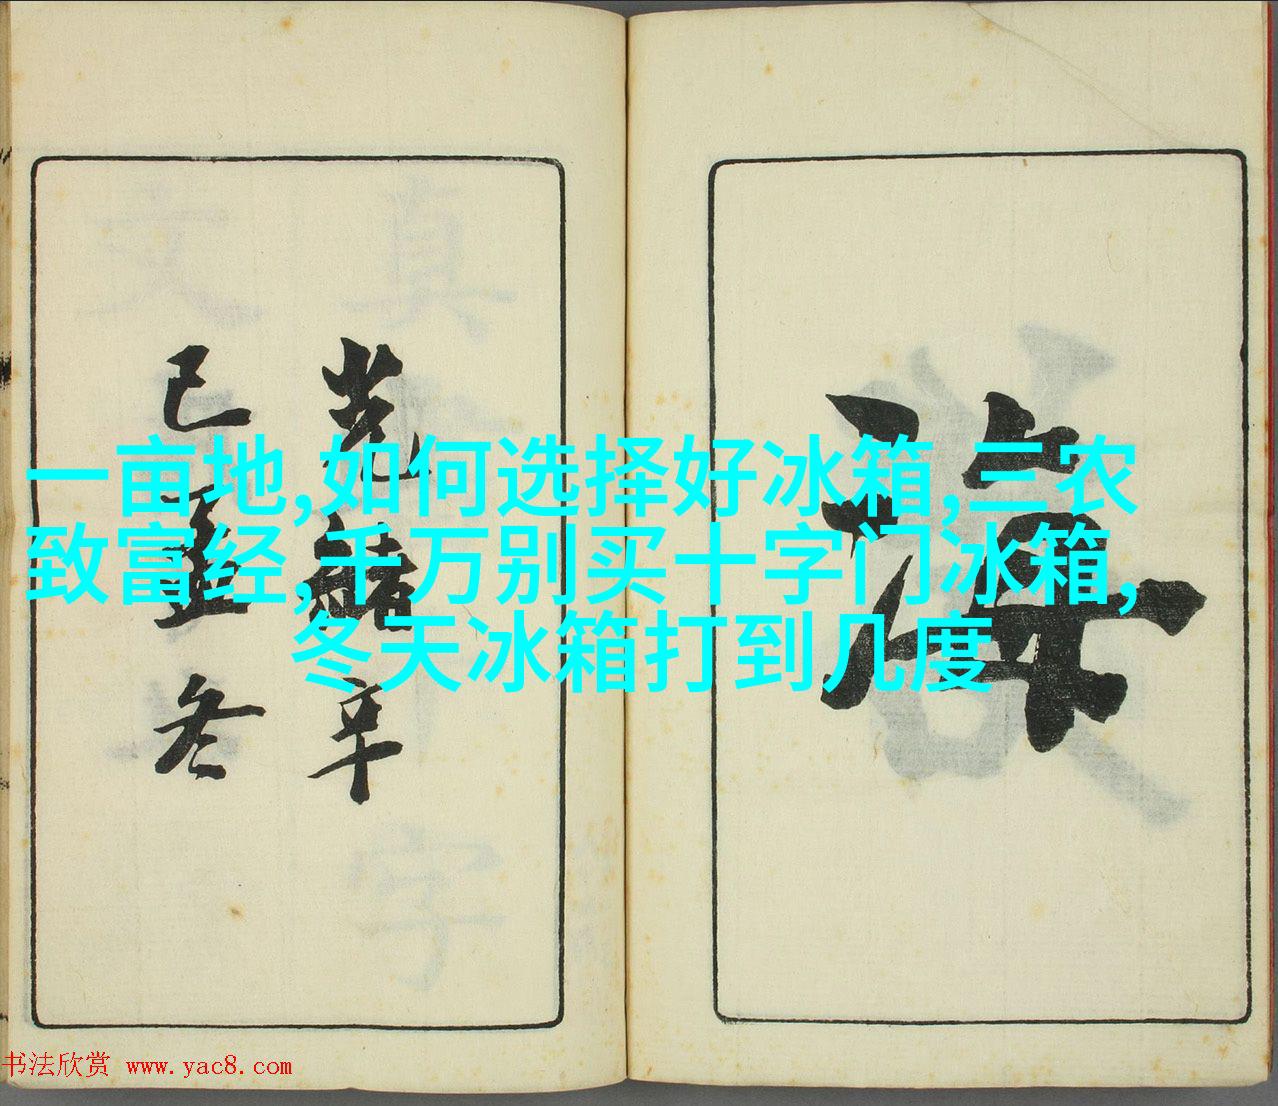 海
光緒辛
巳孟冬
一亩地,如何选择好冰箱,三农
致富经,千万别买十字门冰箱,
冬天冰箱打到几度
书法欣赏 www.yac8.com